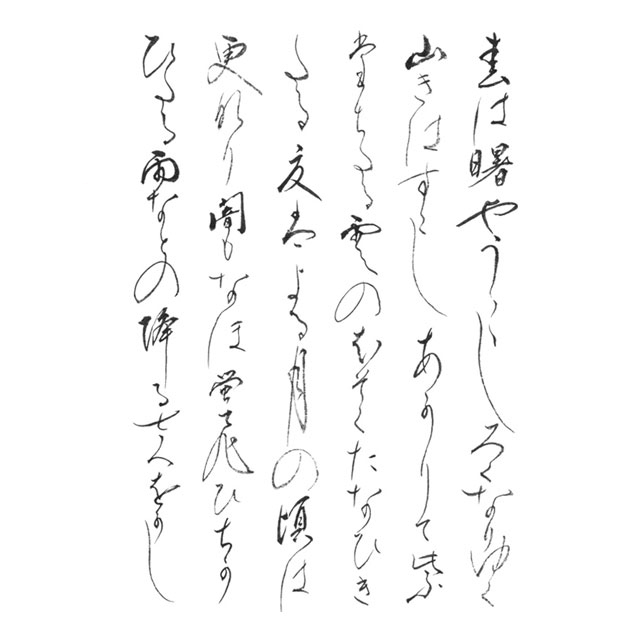 春は曙やう〱しろくなりゆく
山きはすこしあかりて紫
たちたる雲のほそくたなひき
たる夏はよる月の頃は
更なり闇もなほ蛍飛ひちか
ひたる雨なとの降るさへをかし